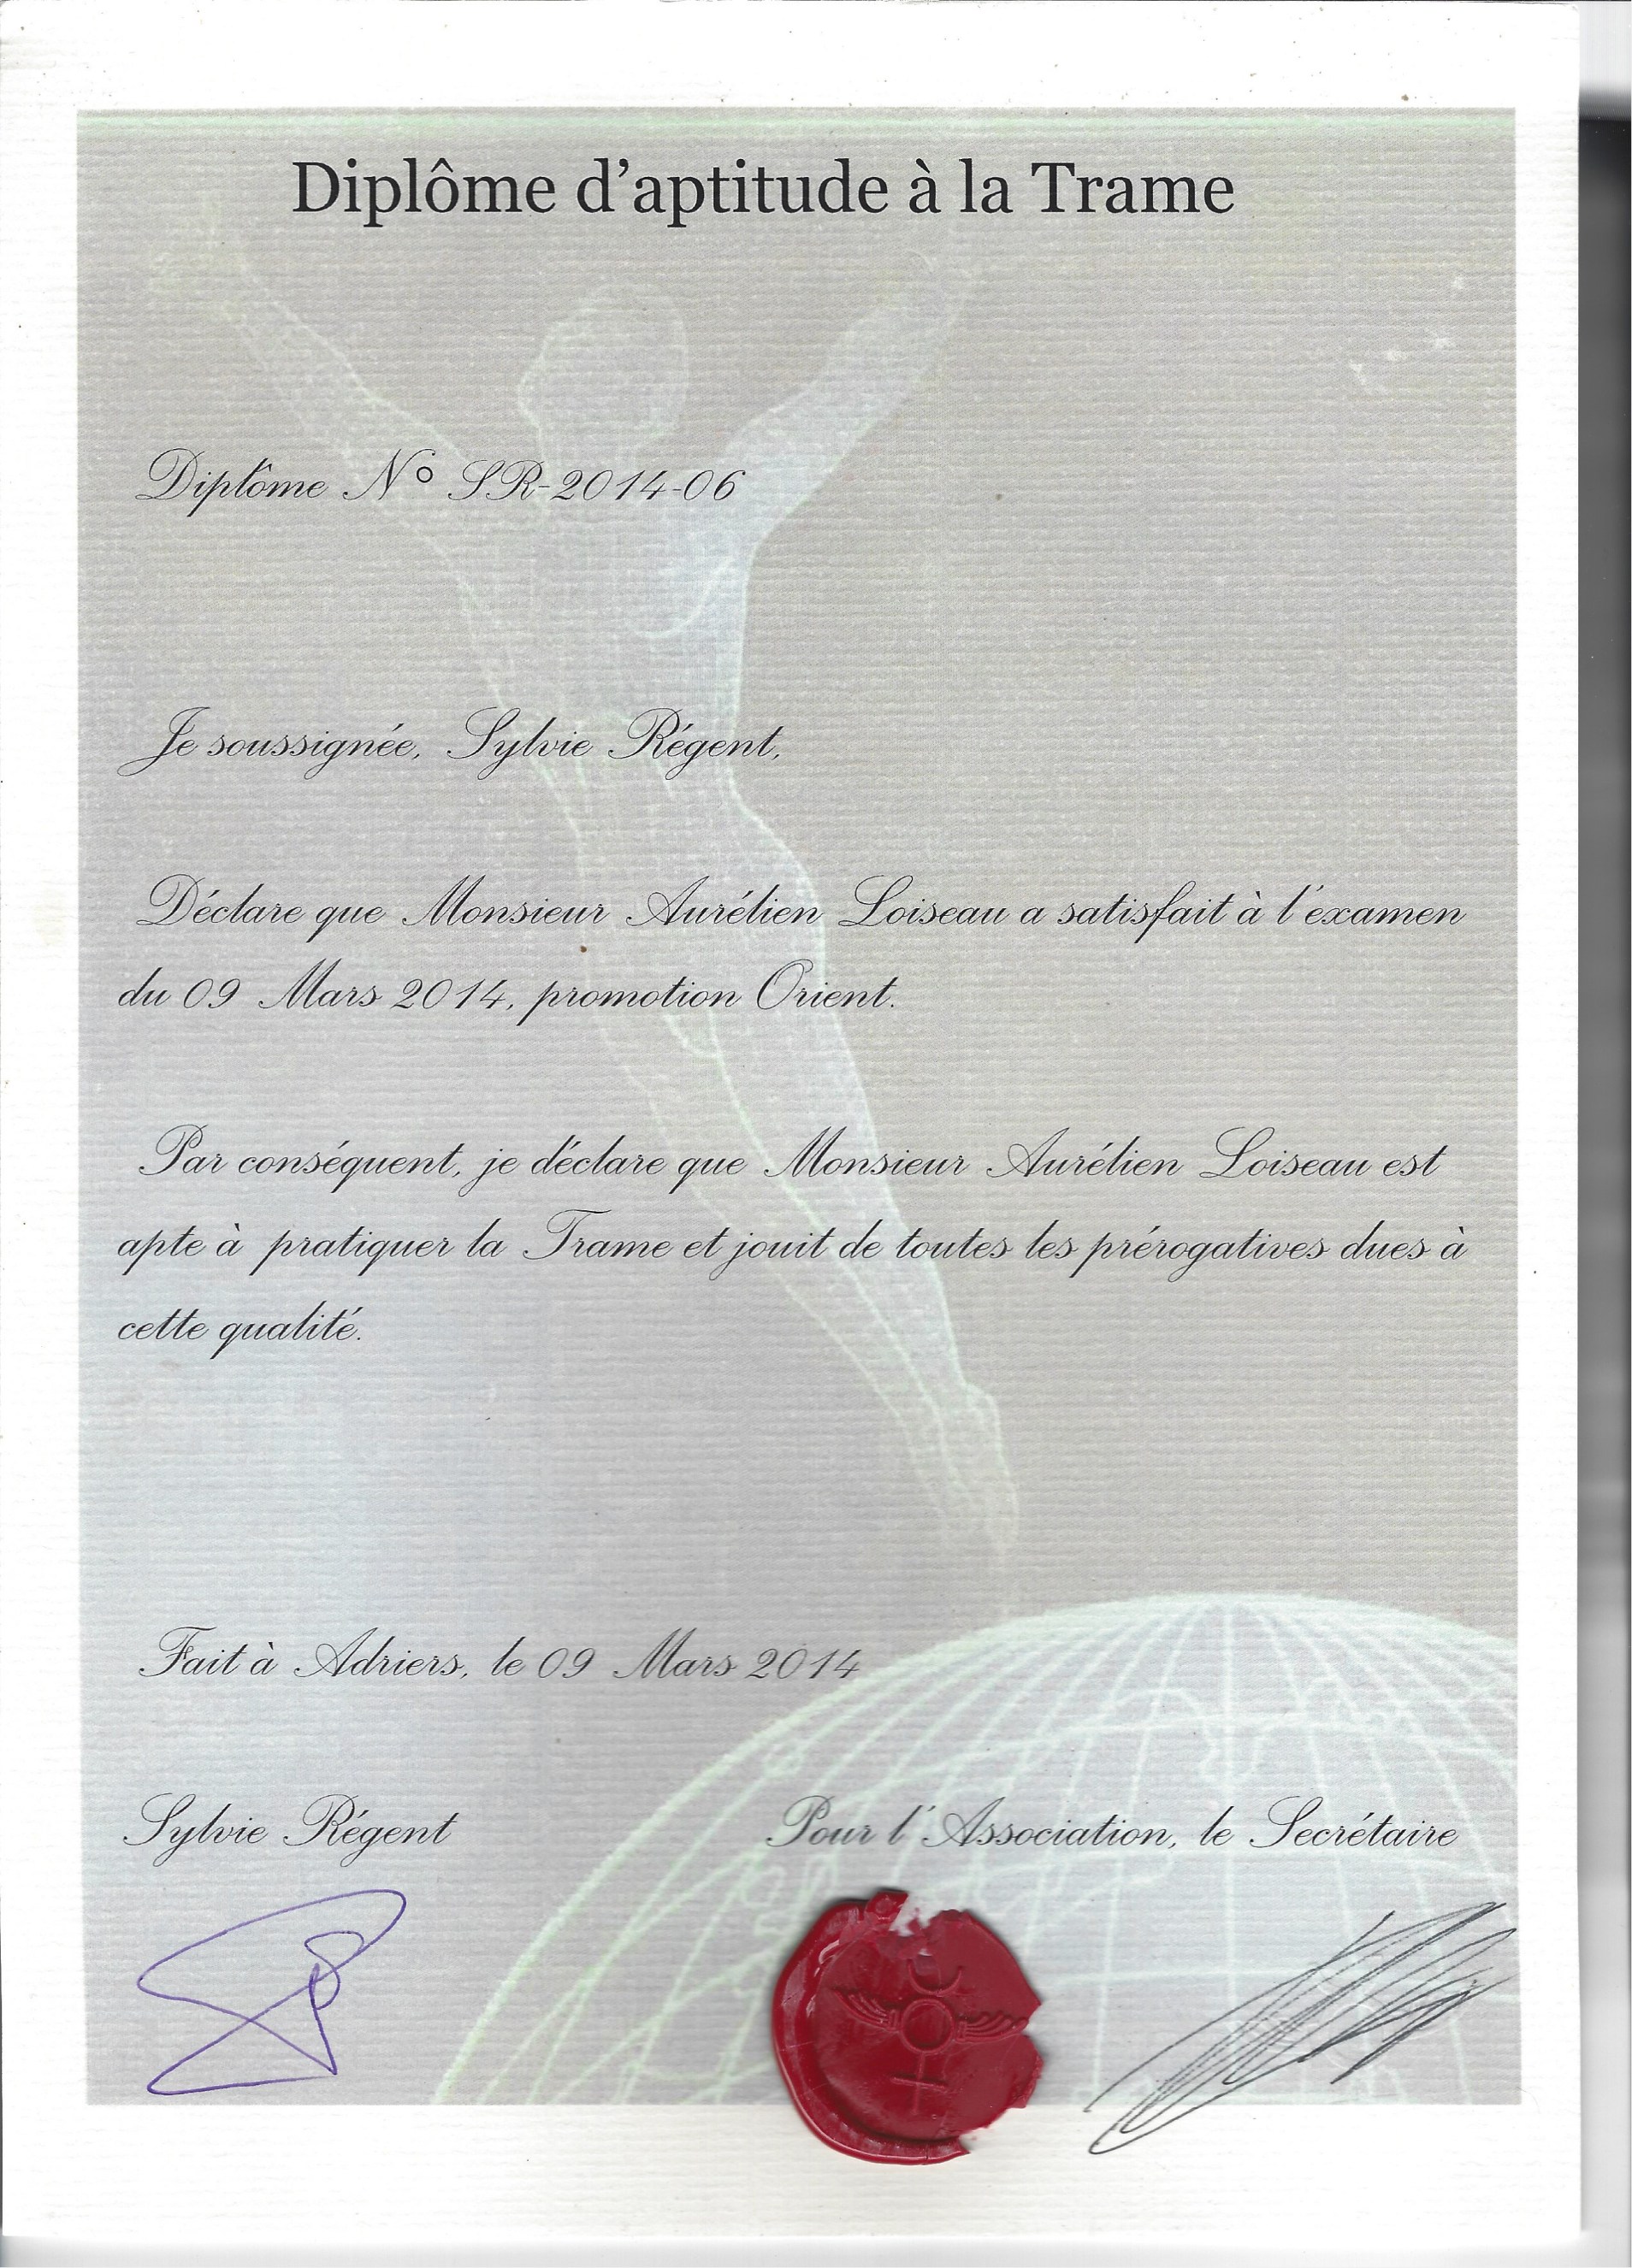 Diplôme d’aptitude à la Trame
Diplôme N° SR-2014-06
Je soussignée, Sylvie Régent,
Déclare que Monsieur Aurélien Loiseau a satisfait à l'examen
du 09 Mars 2014, promotion Orient.
Par conséquent, je déclare que Monsieur Aurélien Loiseau est
apte à pratiquer la Trame et jouit de toutes les prérogatives dues à
cette qualité.
Fait à Adriers, le 09 Mars 2014
Sylvie Régent
Pour l'Association, le Secrétaire